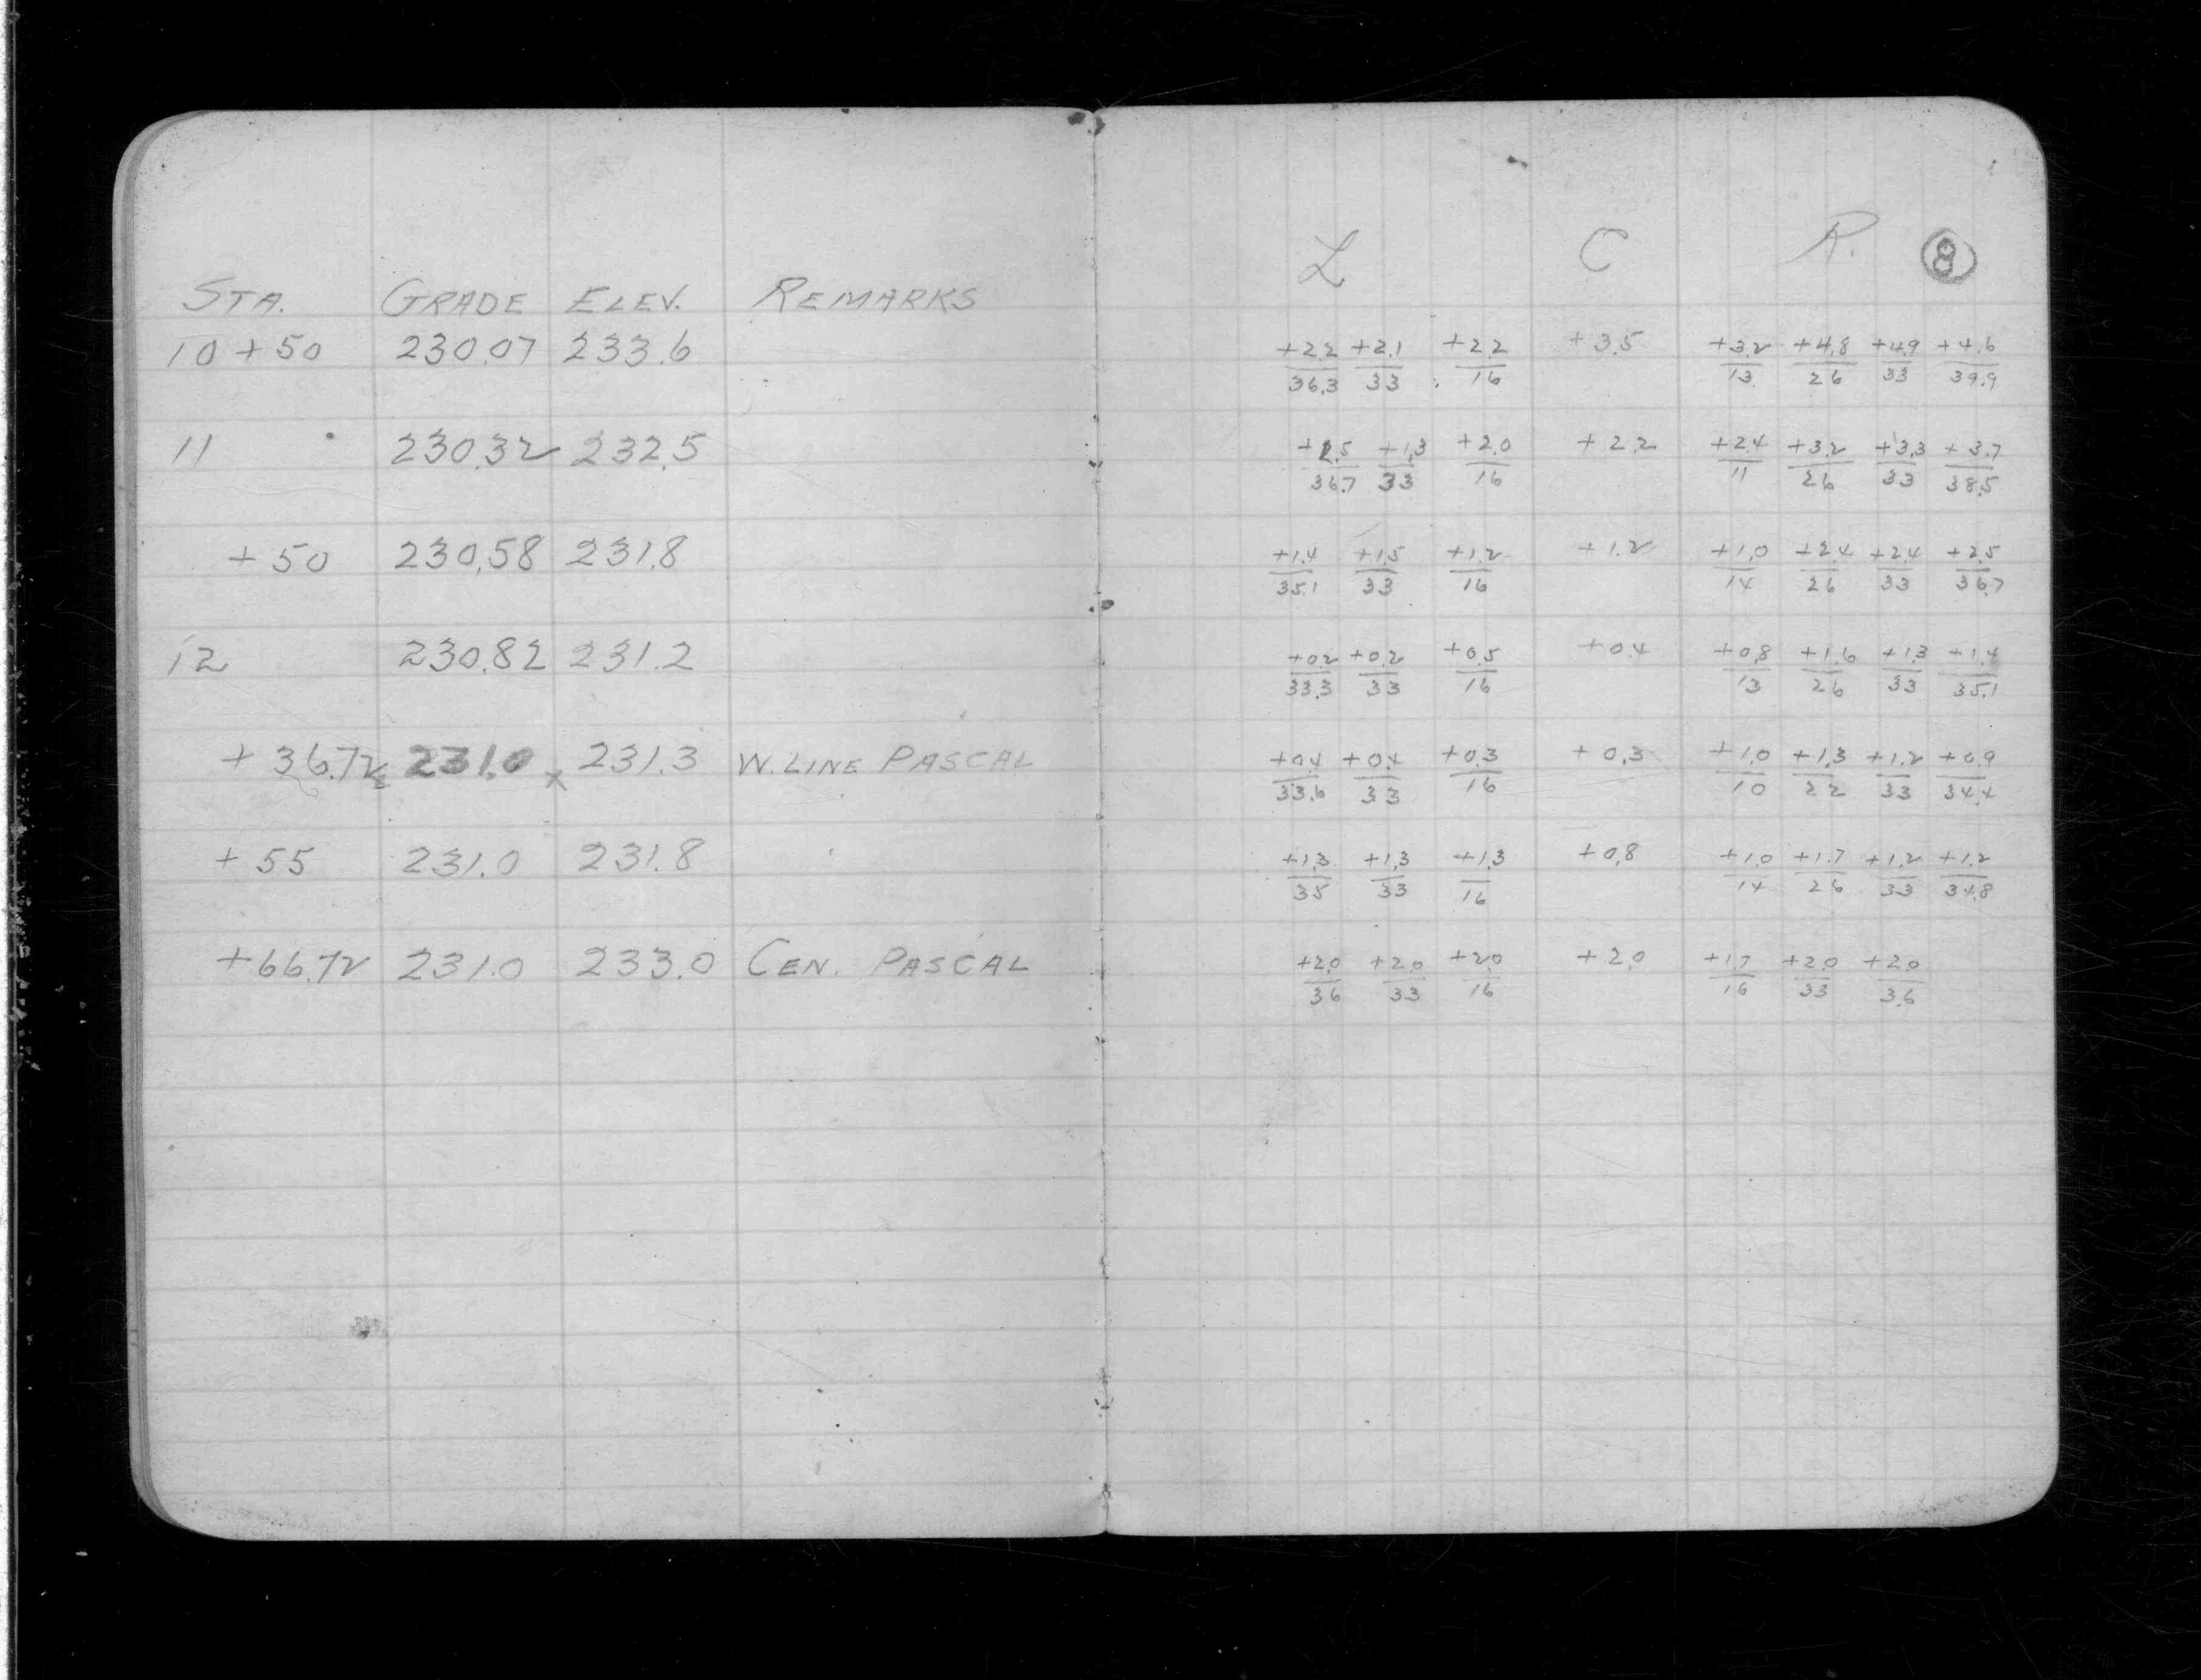 L C R. 8
STA. GRADE ELEV. REMARKS
10 + 50 230.07 233.6 +2.2 +2.1 +2.2 +3.5 +3.2 +4.8 +4.9 +4.6
36.3 33 16 13 26 33 39.9
11 230.32 232.5 +2.5 +1.3 +2.0 +2.2 +2.4 +3.2 +3.3 +3.7
36.7 33 16 11 26 33 38.5
+ 50 230.58 231.8 +1.4 +1.5 +1.2 +1.2 +1.0 +2.4 +2.4 +2.5
35.1 33 16 14 26 33 36.7
12 230.82 231.2 +0.2 +0.2 +0.5 +0.4 +0.8 +1.6 +1.3 +1.4
33.3 33 16 13 26 33 35.1
+ 36.72 231.0 x 231.3 W. LINE PASCAL +0.4 +0.4 +0.3 +0.3 +1.0 +1.3 +1.2 +0.9
33.6 33 16 10 22 33 34.4
+ 55 231.0 231.8 +1.3 +1.3 +1.3 +0.8 +1.0 +1.7 +1.2 +1.2
35 33 16 14 26 33 34.8
+66.72 231.0 233.0 CEN. PASCAL +2.0 +2.0 +2.0 +2.0 +1.7 +2.0 +2.0
36 33 16 16 33 36